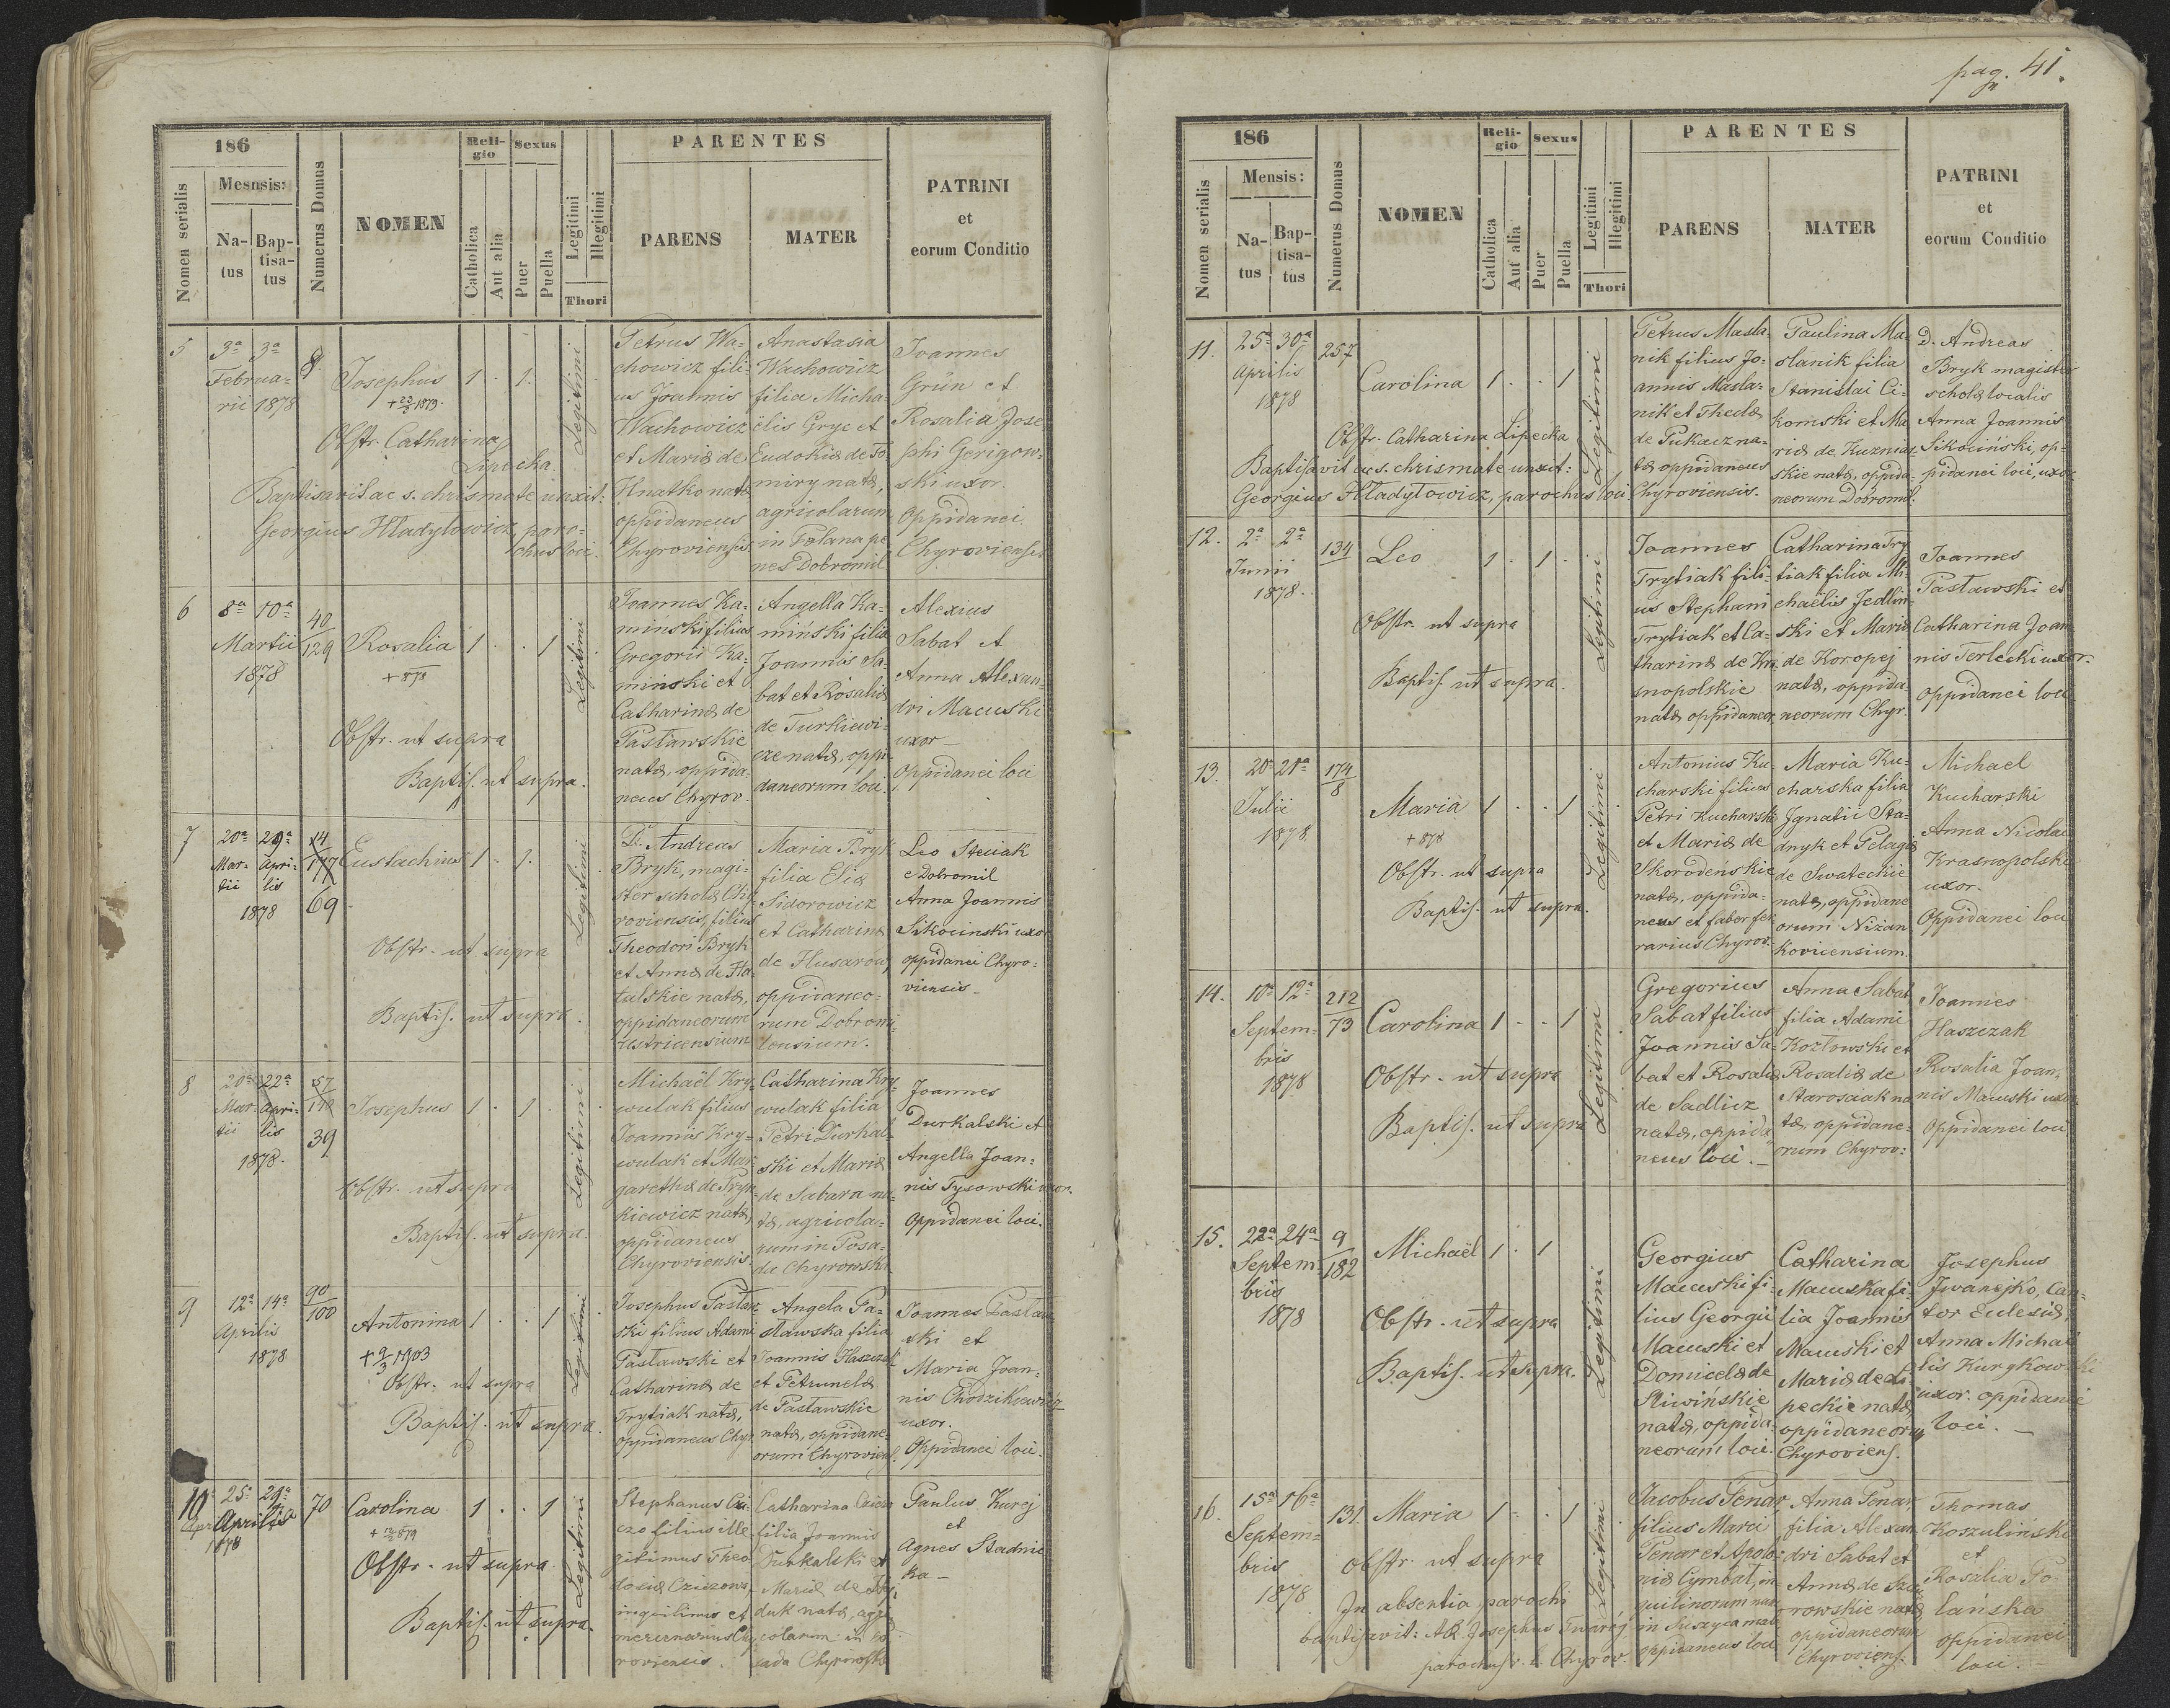 186
Mesnsis:
Nomen serialis
Na-
tus
Bap-
tisa-
tus
Numerus Domus
NOMEN
Reli-
gio
Sexus
Catholica
Aut alia
Puer
Puella
Legitimi
Illegitimi
Thori
PARENTES
PARENS
MATER
PATRINI
et
eorum Conditio
5
3ª 3ª
Februa-
rii 1878
8.
Josephus 1 . 1.
Obstr. Catharina
Lipecka.
Baptisavit ac s. chrismate unxit:
Georgius Hladylowicz paro-
chus loci.
Legitimi
Petrus Wa-
chowicz fili-
us Joannis
Wachowicz
et Mariæ de
Hnatko natæ
oppidaneus
Chyroviensis
Anastasia
Wachowicz
filia Micha-
ëlis Gryc et
Eudokiæ de To
miry natæ,
agricolarum
in Polana pe
nes Dobromil
Joannes
Grün et
Rosalia Jose
phi Gerigow-
ski uxor.
Oppidanei
Chyrovienses
6
8ª 10ª
Martii
1878
40
129
Rosalia 1 . . 1
+ 878
Obstr. ut supra
Baptis. ut supra.
Legitimi
Joannes Ka-
minski filius
Gregorii Ka-
minski et
Catharinæ de
Pasławskie
natæ, oppida-
neus Chyrov.
Angella Ka-
miński filia
Joannis Sa-
bat et Rosaliæ
de Turkiewi-
cze natæ, oppi
daneorum loci.
Alexius
Sabat et
Anna Alexan-
dri Macuski
uxor
Oppidanei loci
7
20ª 29ª
Mar- Apri-
tii lis
1878
14
177
69
Eustachius 1 . 1.
Obstr. ut supra
Baptis. ut supra.
Legitimi
D. Andreas
Bryk, magi-
ster scholæ Chy
roviensis, filius
Theodori Bryk
et Annæ de Ha-
tulskie natæ,
oppidaneorum
Ustricensium
Maria Bryk
filia Eliæ
Sidorowicz
et Catharinæ
de Husarow,
oppidaneo-
rum Dobromi-
lensium.
Leo Steciak
e Dobromil
Anna Joannis
Sikocinski uxor
oppidanei Chyro-
viensis
8
20ª 22ª
Mar- Apri-
tii lis
1878.
57
39
Josephus 1 . 1.
Obstr. ut supra
Baptis. ut supra.
Legitimi
Michaël Kry-
wulak filius
Joannis Kry-
wulak et Mar-
garethæ de Tryn-
kiewicz natæ,
oppidaneus
Chyroviensis.
Catharina Kry-
wulak filia
Petri Durkal-
ski et Mariæ
de Sabara na-
tæ, agricola-
rum in Posa-
da Chyrowska
Joannes
Durkalski et
Angella Joan-
nis Tysowski uxor.
Oppidanei loci.
9
12ª 14ª
Aprilis
1878
90
100
Antonina 1 . . 1
+ 9/3 1903
Obstr. ut supra
Baptis. ut supra.
Legitimi
Josephus Pasław-
ski filius Adami
Pasławski et
Catharinæ de
Trytiak natæ,
oppidaneus Chyr.
Angela Pa-
sławska filia
Joannis Haszczak
et Petrunelæ
de Pasławskie
natæ, oppidane-
orum Chyroviens.
Joannes Pasław
ski et
Maria Joan-
nis Chodzikiewicz
uxor.
Oppidanei loci.
10.
25ª 29ª
Aprilis
1878
70
Carolina 1 . . 1
Obstr. ut supra.
Baptis. ut supra.
Legitimi
Stephanus
filius ille
gitimus Theo
dosiæ
inquilinus et
mercenarius Chy
roviensis.
Catharina
filia Joannis
Durkalski et
Mariæ de
duk natæ, agri
colarum in Po
sada Chyrowska
Paulus Kurej
et
Agnes Stadnic
ka
pag. 41.
186
Mensis:
Nomen serialis
Na-
tus
Bap-
tisa-
tus
Numerus Domus
NOMEN
Reli-
gio
Sexus
Catholica
Aut alia
Puer
Puella
Legitimi
Illegitimi
Thori
PARENTES
PARENS
MATER
PATRINI
et
eorum Conditio
11.
25ª 30ª
Aprilis
1878
257
Carolina 1 . . 1
Obstr. Catharina Lipecka
Baptisavit ac s. chrismate unxit:
Georgius Hladylowicz, parochus loci
Legitimi
Petrus Masla-
nik filius Jo-
annis Masla-
nik et Theclæ
de Pukacz na-
tæ oppidaneus
Chyroviensis.
Paulina Ma-
slanik filia
Stanislai Ci-
komski et Ma
riæ de Kuzniar
skie natæ, oppida-
neorum Dobromil.
D. Andreas
Bryk magister
scholæ localis
Anna Joannis
Sikociński, op-
pidanei loci, uxor
12.
2ª 2ª
Junii
1878.
134
Leo 1 . 1 .
Obstr. ut supra
Baptis. ut supra.
Legitimi
Joannes
Trytiak fili-
us Stephani
Trytiak et Ca-
tharinæ de Kra
snopolskie
natæ oppidaneus
Catharina Try-
tiak filia Mi-
chaëlis Jedlin-
ski et Mariæ
de Koropej
natæ, oppida-
neorum Chyr.
Joannes
Pasławski et
Catharina Joan
nis Terlecki uxor.
Oppidanei loci
13.
20ª 21ª
Julii
1878
174
8
Maria 1 . . 1
+ 878
Obstr. ut supra
Baptis. ut supra.
Legitimi
Antonius Ku-
charski filius
Petri Kucharski
et Mariæ de
Skorodeńskie
natæ, oppida-
neus et faber fer
rarius Chyrov.
Maria Ku-
charska filia
Ignatii Sta-
dnyk et Pelagiæ
de Swateckie
natæ, oppidane
orum Niżan
kovicensium.
Michael
Kucharski
Anna Nicolai
Krasnopolski
uxor.
Oppidanei loci
14.
10ª 12ª
Septem-
bris
1878
212
73
Carolina 1 - . 1
Obstr. ut supra
Baptis. ut supra
Legitimi
Gregorius
Sabat filius
Joannis Sa-
bat et Rosaliæ
de Sadlicz
natæ, oppida
neus loci.
Anna Sabat
filia Adami
Kozłowski et
Rosaliæ de
Starosciak na
tæ, oppidane-
orum Chyrov:
Joannes
Haszczak
Rosalia Joan-
nis Macuski uxor
Oppidanei loci
15.
22ª 24ª
Septem-
bris
1878
9
182
Michaël 1 . 1
Obstr. ut supra
Baptis. ut supra.
Legitimi
Georgius
Macuski fi-
lius Georgii
Macuski et
Domicelæ de
Sliwińskie
natæ, oppida-
neorum loci.
Catharina
Macuska fi-
lia Joannis
Macuski et
Mariæ de Li-
peckie natæ,
oppidaneorum
Chyroviens.
Josephus
Iwanejko, Can-
tor Ecclesiæ,
Anna Michaë
lis Kurykowski
uxor. oppidanei
loci.
16.
15ª 16ª
Septem-
bris
1878
131.
Maria 1 - . 1
Obstr. ut supra
In absentia parochi
baptisavit: AR Josephus
parochus r. l. Chyrov.
Legitimi
Jacobus Penar
filius Marci
Penar et Apolo-
niæ Cymbal, in-
quilinorum nat
in Suszyca mała
oppidaneus loci
Anna Penar
filia Alexan-
dri Sabat et
Annæ de
rowskie natæ
oppidaneorum
Chyroviens.
Thomas
Koszuliński
et
Rosalia Po-
lańska
oppidanei
loci.